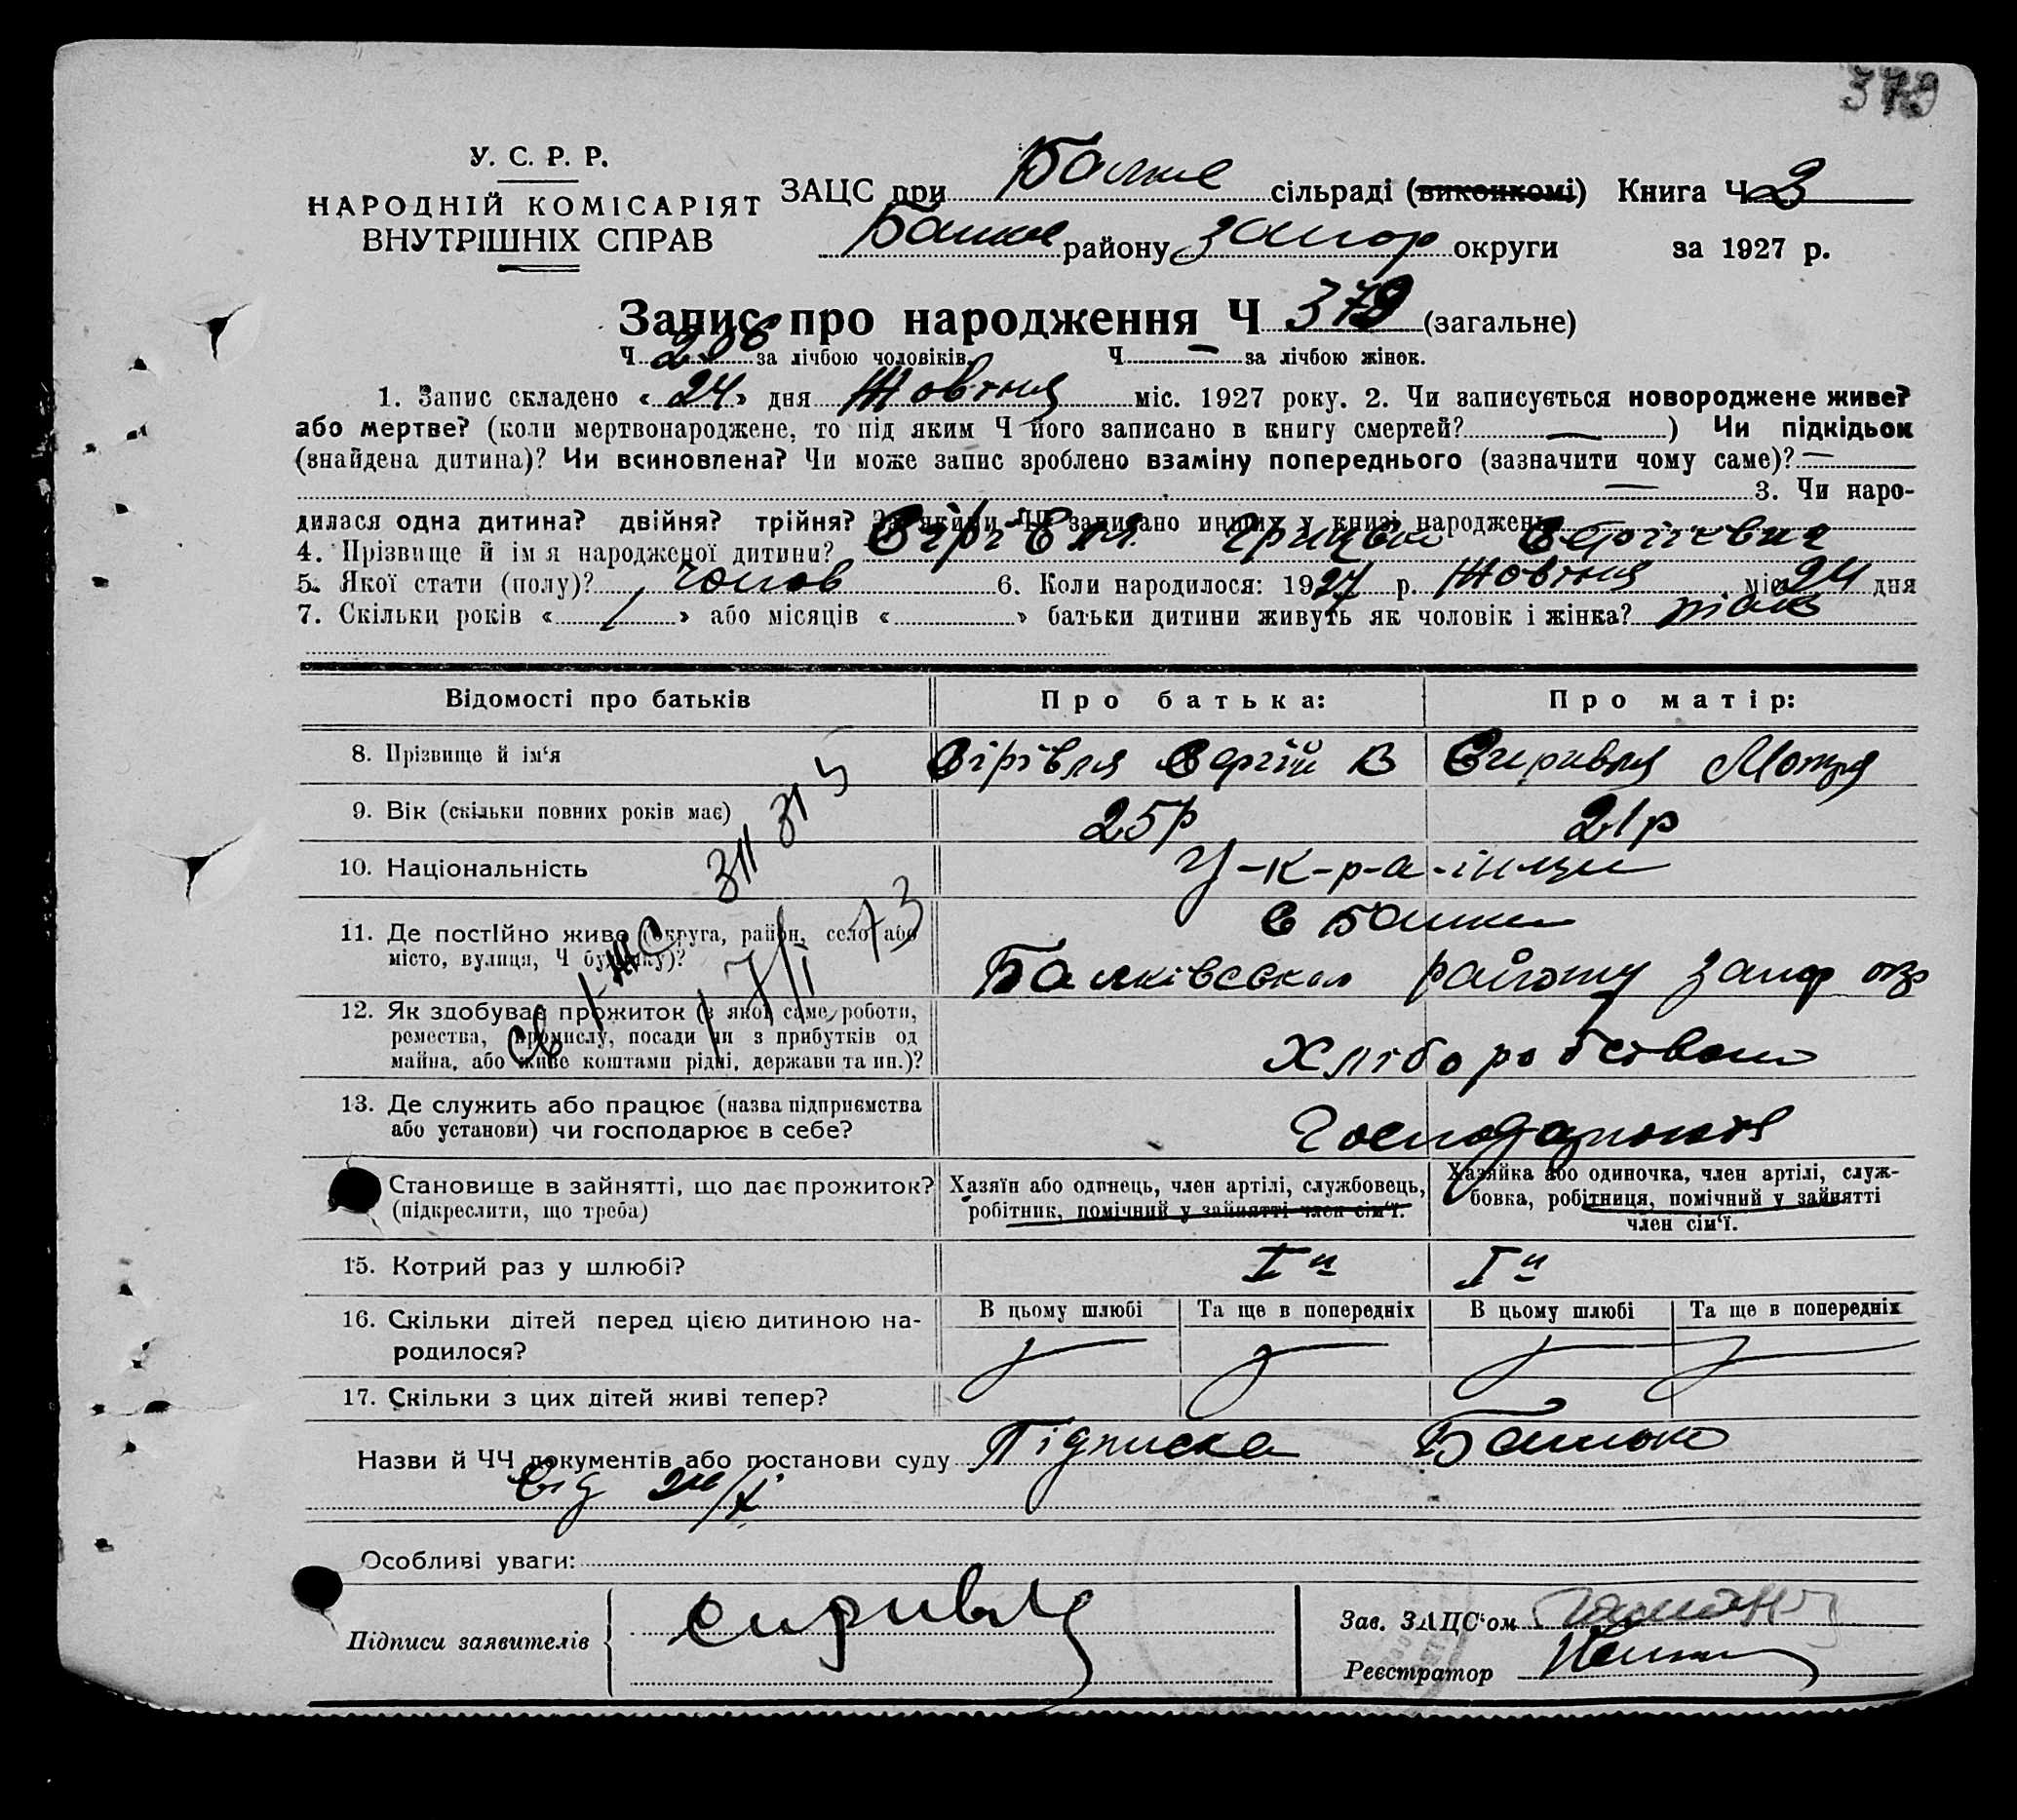 379
У. С. Р. Р.
НАРОДНІЙ КОМІСАРІЯТ
ВНУТРІШНІХ СПРАВ
ЗАЦС при Балкис сільраді (виконкомі) Книга Ч 3
району Запор округи за 1927 р.
Запис про народження Ч 379 (загальне)
Ч 206 за лічбою чоловіків. Ч — за лічбою жінок.
1. Запис складено « 24 » дня Жовтня міс. 1927 року. 2. Чи записується новороджене живе?
або мертве? (коли мертвонароджене, то під яким Ч його записано в книгу смертей? — ) Чи підкідьок
(знайдена дитина)? Чи всиновлена? Чи може запис зроблено взаміну попереднього (зазначити чому саме)? —
— 3. Чи наро-
дилася одна дитина? двійня? трійня? За якими ЧЧ записано инших у книзі народжень
4. Прізвище й ім я народженої дитини? Сірівля Грицько Сергієвич
5. Якої стати (полу)? чолов 6. Коли народилося: 1927 р. Жовтня міс. 24 дня
7. Скільки років « 1 » або місяців « » батьки дитини живуть як чоловік і жінка?
Відомості про батьків Про батька: Про матір:
8. Прізвище й ім‘я Сірівля Сергій В Сиривля Мотря
9. Вік (скільки повних років має) 25р 21р
10. Національність У-к-р-а-інци
11. Де постійно живе (округа, район, село або
місто, вулиця, Ч будинку)? с Балки
Балківського району Запор окр
12. Як здобуває прожиток (з якої саме роботи,
ремества, промислу, посади чи з прибутків од
майна, або живе коштами рідні, держави та ин.)? Хліборобством
13. Де служить або працює (назва підприємства
або установи) чи господарює в себе? Господарюють
Становище в зайнятті, що дає прожиток?
(підкреслити, що треба)
Хазяїн або одинець, член артілі, службовець,
робітник, помічний у зайнятті член сім‘ї.
Хазяйка або одиночка, член артілі, служ-
бовка, робітниця, помічний у зайнятті
член сім‘ї.
15. Котрий раз у шлюбі? I й I й
16. Скільки дітей перед цією дитиною на-
родилося?
В цьому шлюбі Та ще в попередніх В цьому шлюбі Та ще в попередніх
17. Скільки з цих дітей живі тепер?
Назви й ЧЧ документів або постанови суду Підписка Батько
від 24/X
Особливі уваги:
Підписи заявителів Сиривля
Зав. ЗАЦС‘ом
Реєстратор